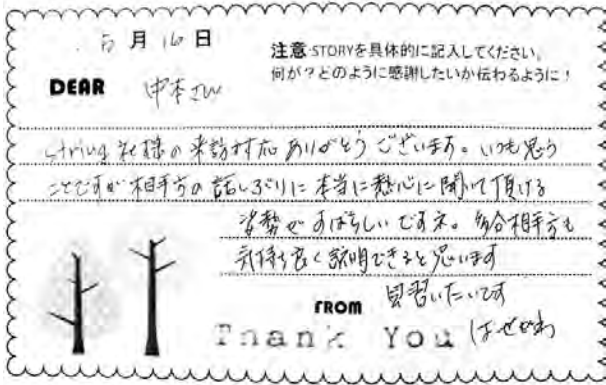 5月16日
注意:STORYを具体的に記入してください。
何が?どのように感謝したいか伝わるように!
DEAR 中本さん
string社様の来訪対応ありがとうございます。いつも思う
ことですが相手方の話しぶりに本当に熱心に聞いて頂ける
姿勢がすばらしいですネ。多分相手方も
気持ち良く説明できると思います
見習いたいです
FROM はせがわ
Thank You